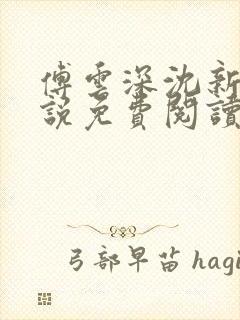 傅雲深沈新
說免費閱讀
弓部早苗 hagi